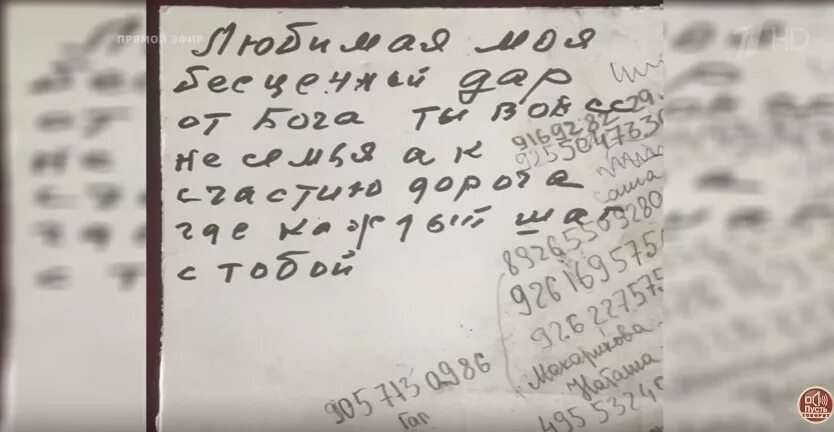 ПРЯМОЙ ЭФИР
HD
Любимая моя
бесценный дар
от Бога ты вовсе
не семья а к
счастию дорога
где каждый шаг
с тобой
9169282 29
9255047330
саша
89265509280
926169575
926227575
Макарикова
Наташа
495 5324
9057130986
Гаг
Пусть
говорят